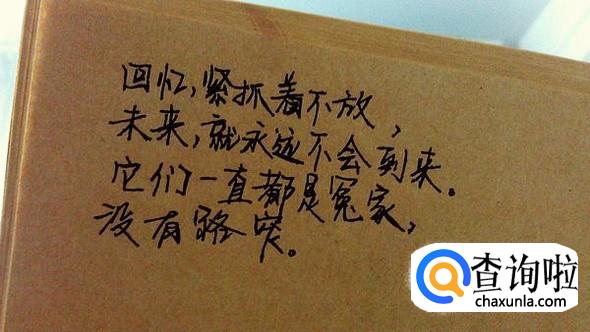 回忆,紧抓着不放,
未来,就永远不会到来。
它们一直都是冤家,
没有路突。
查询啦
chaxunla.com